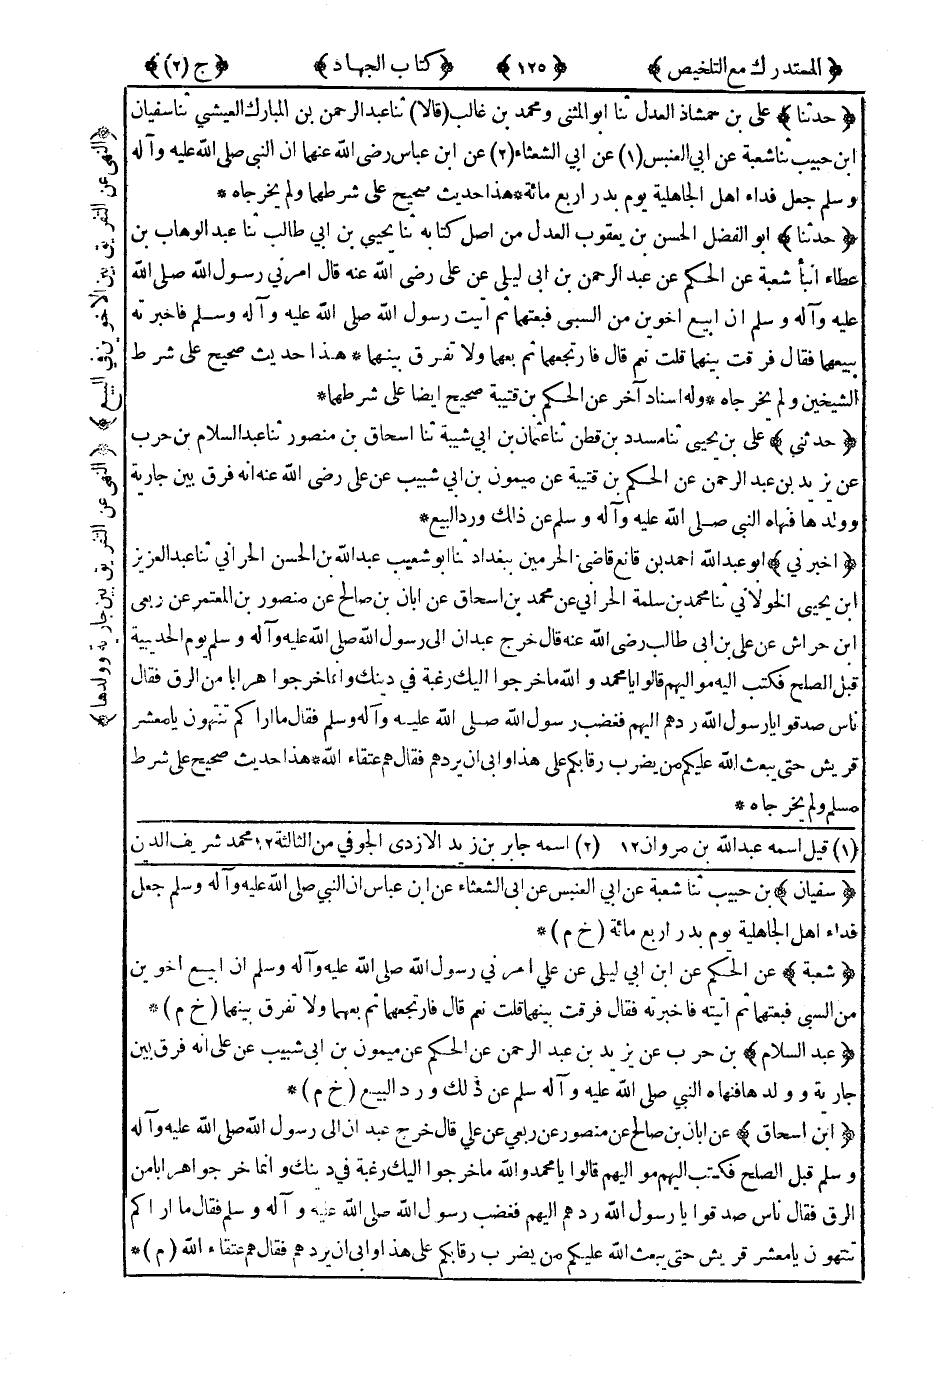 ﴿المستدرك مع التلخيص﴾ ﴿١٢٥﴾ ﴿كتاب الجهاد﴾ ﴿ج (٢)﴾
﴿حدثنا﴾ على بن حمشاذ العدل ثنا ابو المثنى ومحمد بن غالب (قالا) ثنا عبد الرحمن بن المبارك العيشي ثنا سفيان
ابن حبيب ثنا شعبة عن ابي العنبس (١) عن ابي الشعثاء (٢) عن ابن عباس رضى الله عنهما ان النبي صلى الله عليه وآله
وسلم جعل فداء اهل الجاهلية يوم بدر اربع مائة * هذا حديث صحيح على شرطهما ولم يخرجاه *
﴿حدثنا﴾ ابو الفضل الحسن بن يعقوب العدل من اصل كتابه ثنا يحيى بن ابي طالب ثنا عبد الوهاب بن
عطاء انبأ شعبة عن الحكم عن عبد الرحمن بن ابى ليلى عن على رضى الله عنه قال امرني رسول الله صلى الله
عليه وآله وسلم ان ابيع اخوين من السبى فبعتهما ثم اتيت رسول الله صلى الله عليه وآله وسلم فاخبرته
ببيعهما فقال فرقت بينهما قلت نعم قال فارتجعهما ثم بعهما ولا تفرق بينهما * هذا حديث صحيح على شرط
الشيخين ولم يخرجاه * وله اسناد آخر عن الحكم بن قتيبة صحيح ايضا على شرطهما *
﴿حدثنى﴾ على بن يحيى ثنا مسدد بن قطن ثنا عثمان بن ابي شيبة ثنا اسحاق بن منصور ثنا عبد السلام بن حرب
عن يزيد بن عبد الرحمن عن الحكم بن قتيبة عن ميمون بن ابي شبيب عن على رضى الله عنه انه فرق بين جارية
وولدها فنهاه النبي صلى الله عليه وآله وسلم عن ذالك ورد البيع *
﴿اخبرني﴾ ابو عبد الله احمد بن قانع قاضى الحرمين ببغداد ثنا ابو شعيب عبد الله بن الحسن الحراني ثنا عبد العزيز
ابن يحيى الخولاني ثنا محمد بن سلمة الحراني عن محمد بن اسحاق عن ابان بن صالح عن منصور بن المعتمر عن ربعى
ابن حراش عن على بن ابى طالب رضى الله عنه قال خرج عبدان الى رسول الله صلى الله عليه وآله وسلم يوم الحديبية
قبل الصلح فكتب اليه مواليهم قالوا يا محمد والله ما خرجوا اليك رغبة في دينك وانما خرجوا هرابا من الرق فقال
ناس صدقوا يا رسول الله ردهم اليهم فغضب رسول الله صلى الله عليه وآله وسلم فقال ما اراكم تنتهون يا معشر
قريش حتى يبعث الله عليكم من يضرب رقابكم على هذا وابى ان يردهم فقال هم عتقاء الله * هذا حديث صحيح على شرط
مسلم ولم يخرجاه *
(١) قيل اسمه عبد الله بن مروان ١٢ (٢) اسمه جابر بن زيد الازدى الجوفي من الثالثة ١٢ محمد شريف الدين
﴿سفيان﴾ بن حبيب ثنا شعبة عن ابي العنبس عن ابى الشعثاء عن ابن عباس ان النبي صلى الله عليه وآله وسلم جعل
فداء اهل الجاهلية يوم بدر اربع مائة (خ م) *
﴿شعبة﴾ عن الحكم عن ابن ابي ليلى عن علي امرني رسول الله صلى الله عليه وآله وسلم ان ابيع اخوين
من السبي فبعتهما ثم اتيته فاخبرته فقال فرقت بينهما قلت نعم قال فارتجعهما ثم بعهما ولا تفرق بينهما (خ م) *
﴿عبد السلام﴾ بن حرب عن يزيد بن عبد الرحمن عن الحكم عن ميمون بن ابى شبيب عن على انه فرق بين
جارية وولدها فنهاه النبي صلى الله عليه وآله سلم عن ذلك ورد البيع (خ م) *
﴿ابن اسحاق﴾ عن ابان بن صالح عن منصور عن ربعي عن علي قال خرج عبدان الى رسول الله صلى الله عليه وآله
وسلم قبل الصلح فكتب اليهم مواليهم قالوا يا محمد والله ما خرجوا اليك رغبة في دينك وانما خرجوا هرابا من
الرق فقال ناس صدقوا يا رسول الله ردهم اليهم فغضب رسول الله صلى الله عليه وآله وسلم فقال ما اراكم
تنتهون يا معشر قريش حتى يبعث الله عليكم من يضرب رقابكم على هذا وابى ان يردهم فقال هم عتقاء الله (م) *
﴿النهى عن التفريق بين الاخوين في البيع﴾ ﴿النهى عن التفريق بين جارية وولدها﴾